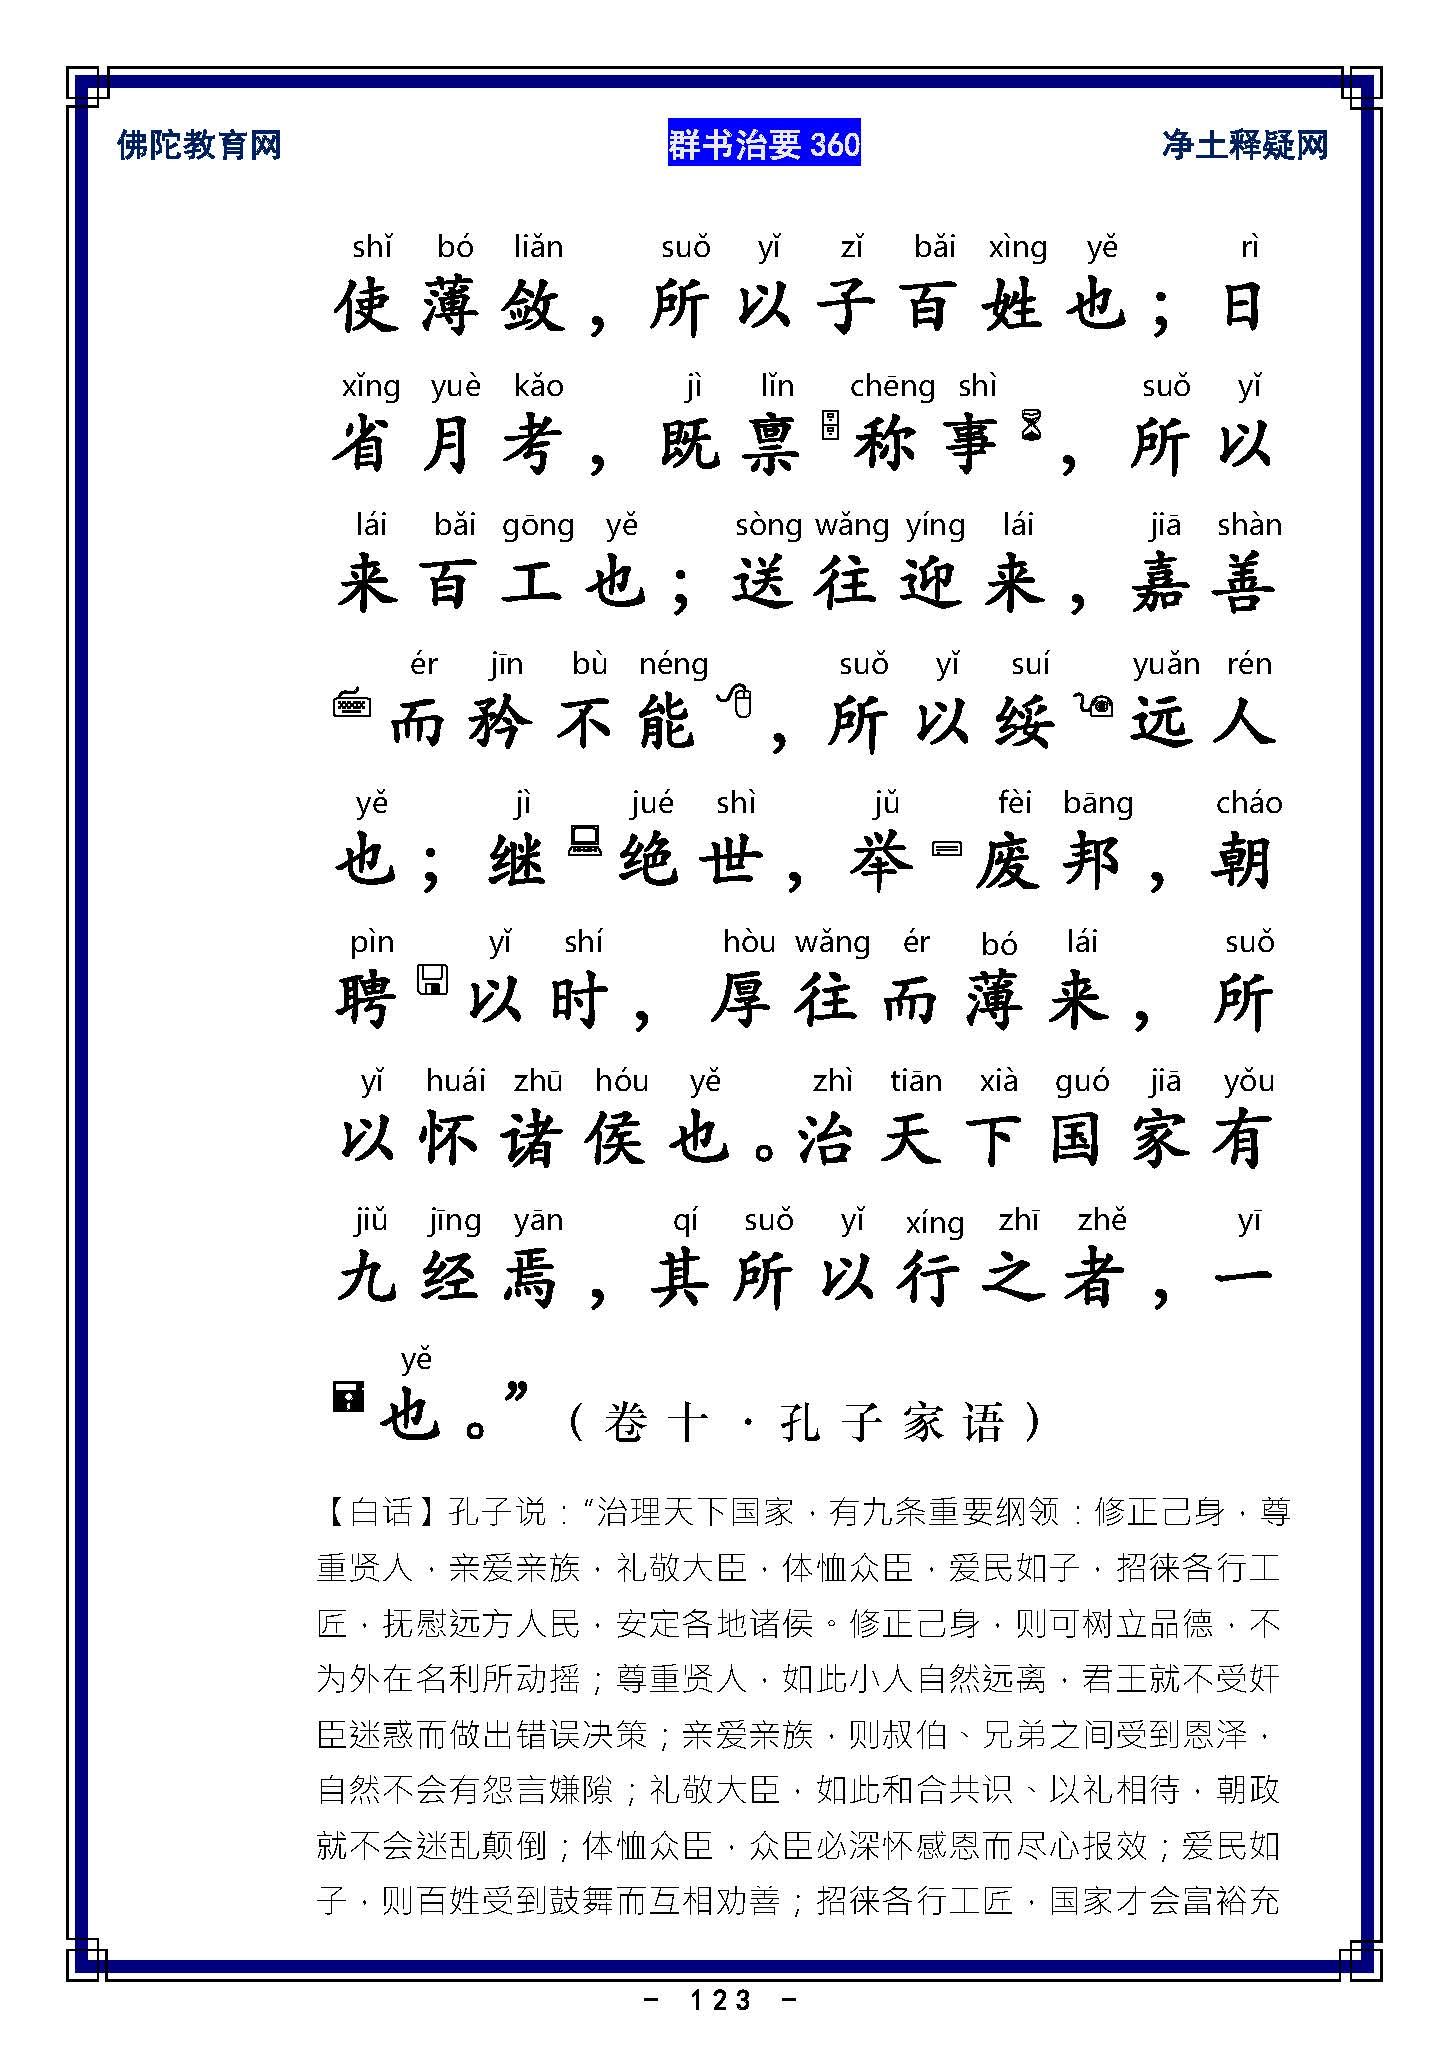 佛陀教育网 群书治要 360 净土释疑网
shǐ bó liǎn suǒ yǐ zǐ bǎi xìng yě rì
使薄敛，所以子百姓也；日
xǐng yuè kǎo jì lǐn chēng shì suǒ yǐ
省月考，既禀称事，所以
lái bǎi gōng yě sòng wǎng yíng lái jiā shàn
来百工也；送往迎来，嘉善
ér jīn bù néng suǒ yǐ suí yuǎn rén
而矜不能，所以绥远人
yě jì jué shì jǔ fèi bāng cháo
也；继绝世，举废邦，朝
pìn yǐ shí hòu wǎng ér bó lái suǒ
聘以时，厚往而薄来，所
yǐ huái zhū hóu yě zhì tiān xià guó jiā yǒu
以怀诸侯也。治天下国家有
jiǔ jīng yān qí suǒ yǐ xíng zhī zhě yī
九经焉，其所以行之者，一
yě
也。”（卷十·孔子家语）
【白话】孔子说：“治理天下国家，有九条重要纲领：修正己身，尊
重贤人，亲爱亲族，礼敬大臣，体恤众臣，爱民如子，招徕各行工
匠，抚慰远方人民，安定各地诸侯。修正己身，则可树立品德，不
为外在名利所动摇；尊重贤人，如此小人自然远离，君王就不受奸
臣迷惑而做出错误决策；亲爱亲族，则叔伯、兄弟之间受到恩泽，
自然不会有怨言嫌隙；礼敬大臣，如此和合共识、以礼相待，朝政
就不会迷乱颠倒；体恤众臣，众臣必深怀感恩而尽心报效；爱民如
子，则百姓受到鼓舞而互相劝善；招徕各行工匠，国家才会富裕充
- 123 -